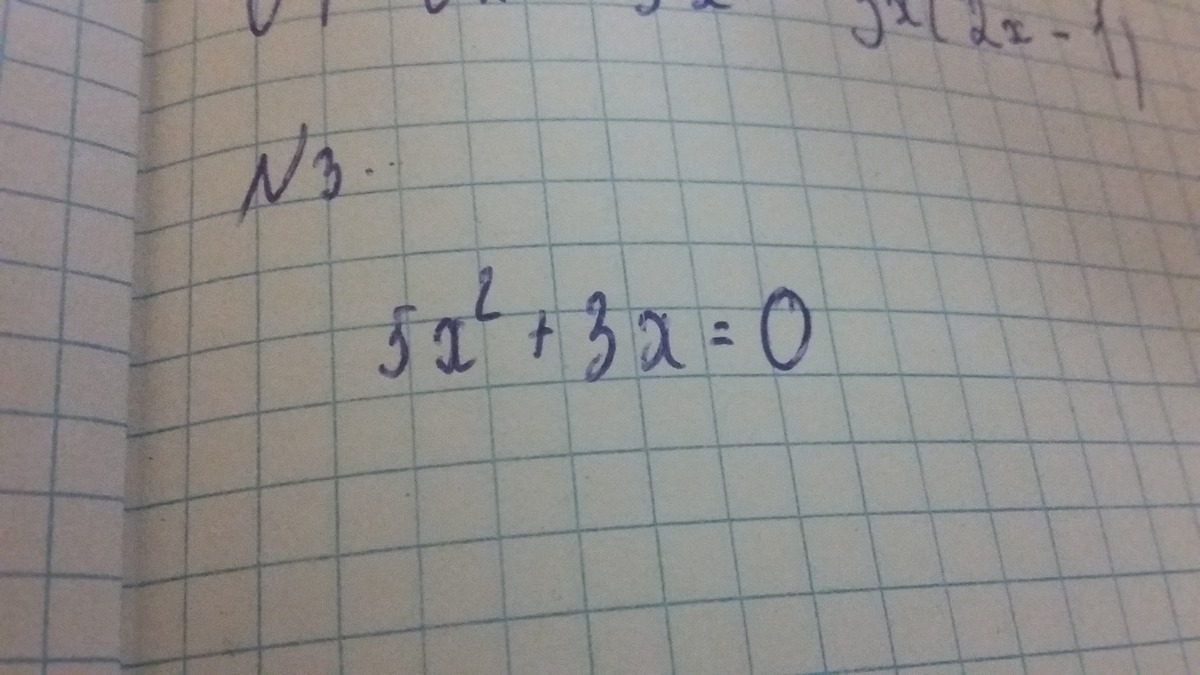 3x(2x - 1)
N3.
5x² + 3x = 0